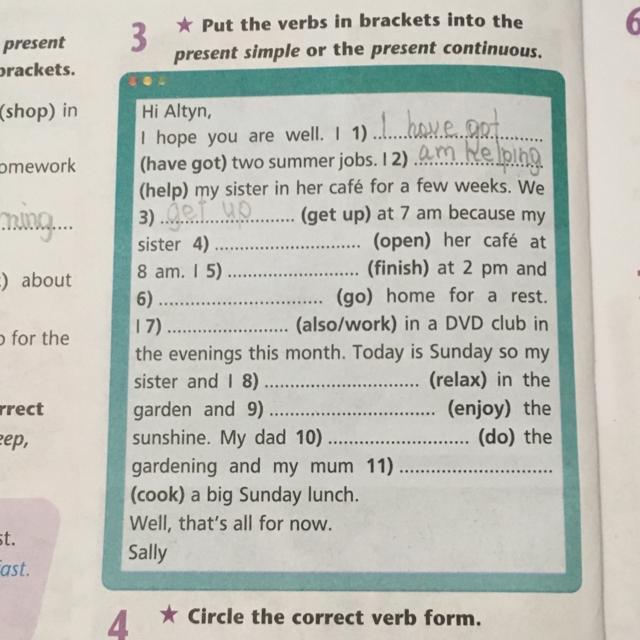 present
brackets.
(shop) in
omework
ning....
) about
o for the
rrect
eep,
st.
fast.
3 ★ Put the verbs in brackets into the
present simple or the present continuous.
Hi Altyn,
I hope you are well. I 1) I have got
(have got) two summer jobs. I 2) am Helping
(help) my sister in her café for a few weeks. We
3) get up (get up) at 7 am because my
sister 4) ............................ (open) her café at
8 am. I 5) ......................... (finish) at 2 pm and
6) ............................... (go) home for a rest.
I 7) ....................... (also/work) in a DVD club in
the evenings this month. Today is Sunday so my
sister and I 8) ............................. (relax) in the
garden and 9) ................................ (enjoy) the
sunshine. My dad 10) ........................... (do) the
gardening and my mum 11) .............................
(cook) a big Sunday lunch.
Well, that's all for now.
Sally
4 ★ Circle the correct verb form.
6